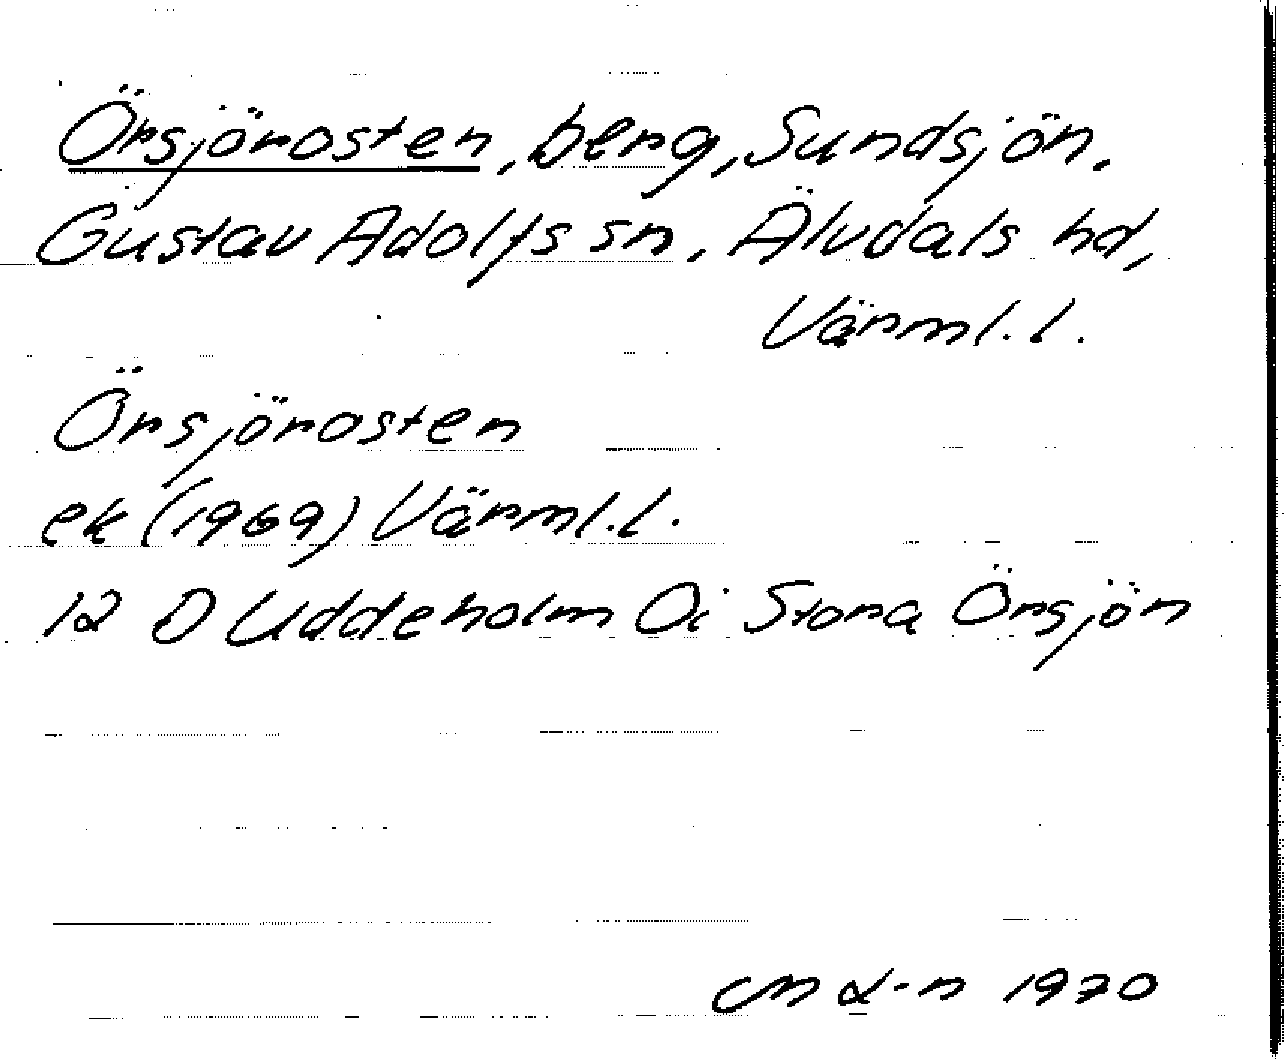 Örsjörosten, berg, Sundsjön,
Gustav Adolfs sn, Älvdals hd,
Värml. l.
Örsjörosten
ek (1969) Värml. l.
12 D Uddeholm Oi Stora Örsjön
1970